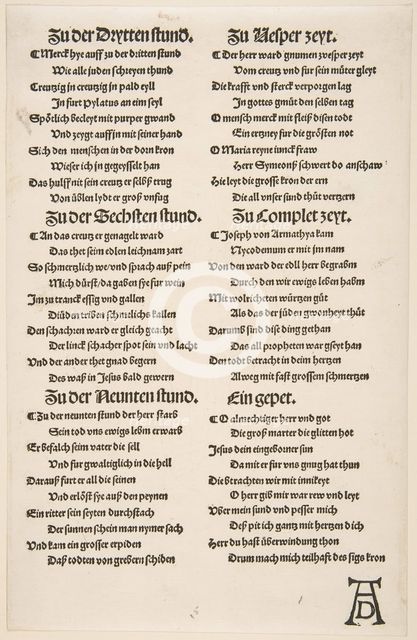 Zu der Drytten stund.
Merck hye auff zu der dritten stund
Wie alle juden schreyen thund
Creutzig in creutzig jn pald eyll
In furt pylatus an eim seyl
Spötlich becleyt mit purper gwand
Vnd zeygt auff jn mit seiner hand
Sich den menschen in der dorn kron
Wie ser ich jn gegeysselt han
Das hulff nit sein creutz er selbß trug
Von üblen lydt er groß vnfug
Zu der Sechsten stund.
An das creutz er genagelt ward
Das thet seim edlen leichnam zart
So schmertzlich we/vnd sprach auß pein
Mich dürst/da gaben sye fur wein
Im zu tranck essig vnd gallen
Die jüden triben schmelichs kallen
Den schachren ward er gleich geacht
Der linck schacher spot sein vnd lacht
Vnd der ander thet gnad begern
Des waß in Jesus bald gewern
Zu der Neunten stund.
Zu der neunten stund der herr starb
Sein tod vns ewigs lebm erwarb
Er befalch seim vater die sell
Vnd fur gwaltiglich in die hell
Darauß furt er all die seinen
Vnd erlöst sye auß den peynen
Ein ritter sein seyten durchstach
Der sunnen schein man nymer sach
Vnd kam ein grosser erpiden
Daß todten von grebern schiden
Zu Vesper zeyt.
Der herr ward gnumen zu vesper zeyt
Vom creutz vnd fur sein müter gleyt
Die krafft vnd sterck verporgen lag
In gottes gmüt den selben tag
O mensch merck mit fleiß disen todt
Ein ertzney fur die grösten not
O Maria reyne junckfraw
Herr Symeonß schwert do anschaw
Hie leyt die grosse kron der ern
Die all vnser sund thüt vertzern
Zu Complet zeyt.
Joseph von Armathya kam
Nycodemum er mit jm nam
Von den ward der edll herr begrabm
Durch den wir ewigs leben habm
Mit wolricheten würtzen güt
Als das der jüden gwonheyt thüt
Darumb sind dise ding gethan
Das all propheten war gseyt han
Den todt betracht in deim hertzen
Alweg mit fast grossem schmertzen
Ein gepet.
O almechtiger herr vnd got
Die groß marter die glitten hot
Jesus dein eingeborner sun
Da mit er fur vns gnug hat thun
Die btrachten wir mit innikeyt
O herr gib mir war rew vnd leyt
Vber mein sund vnd pesser mich
Deß pit ich gantz mit hertzen dich
Herr du hast überwindung thon
Drum mach mich teilhaft des sigs kron
AD